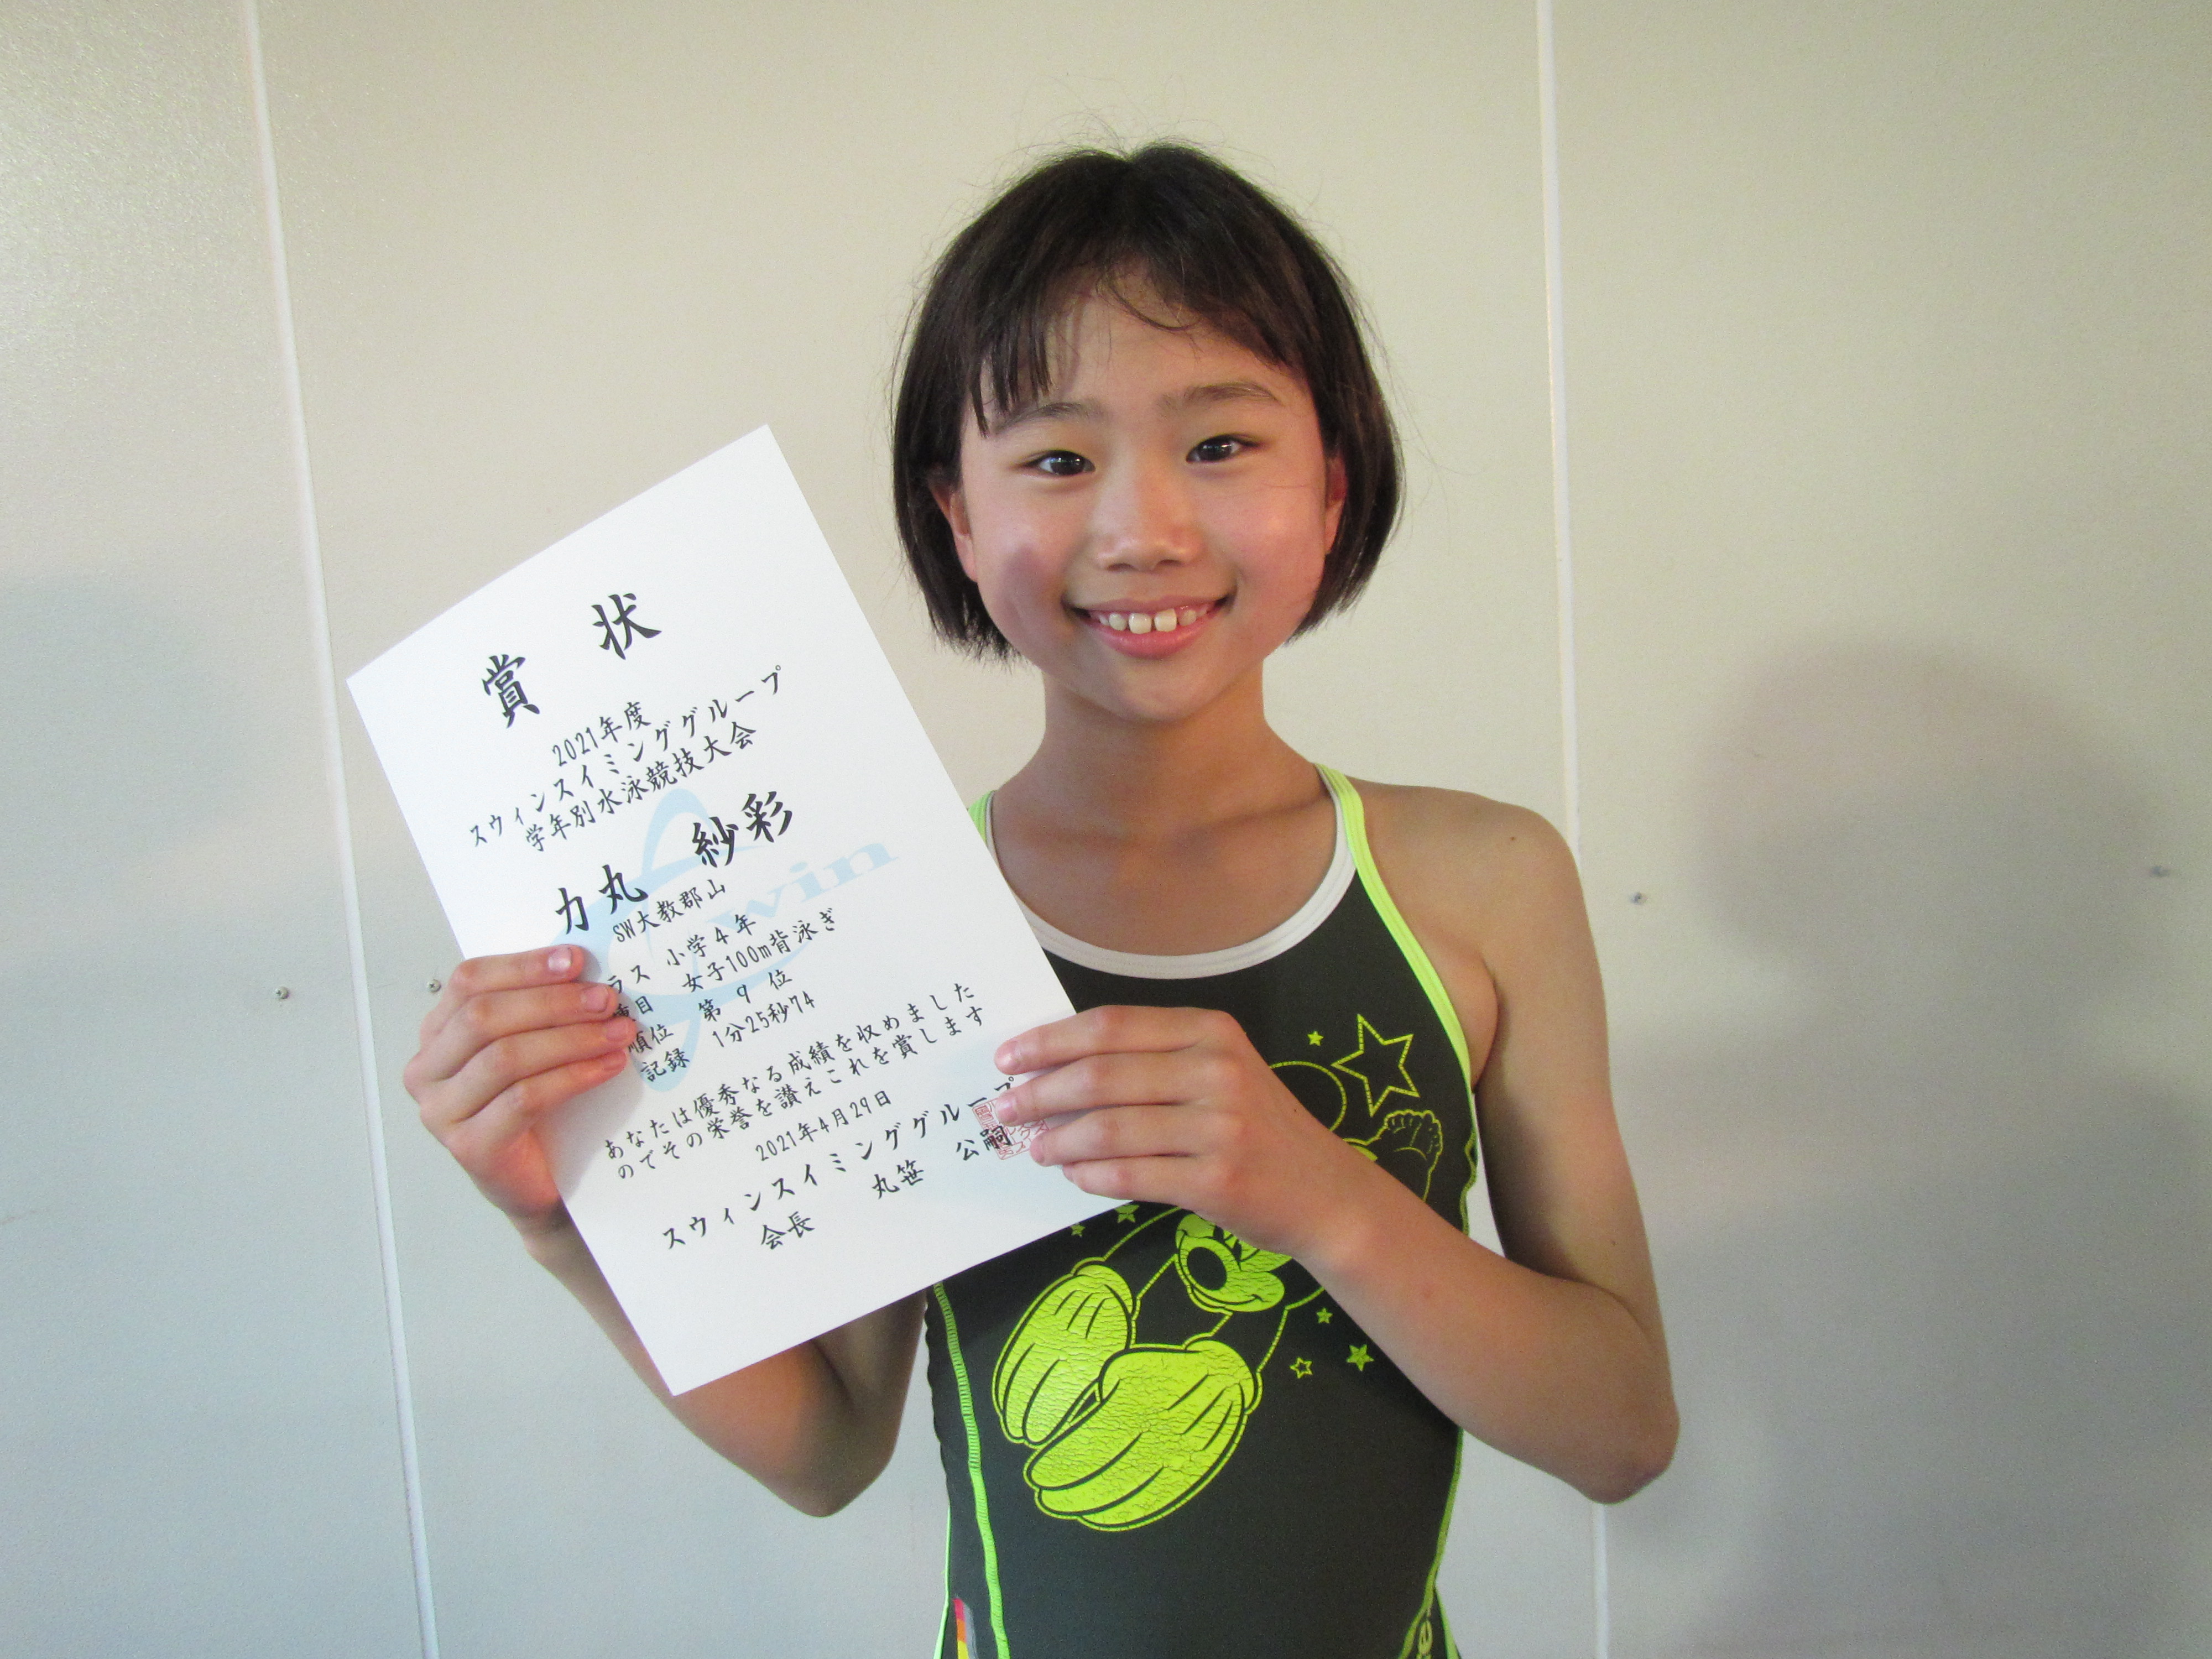 賞状
2021年度
スウィンスイミンググループ
学年別水泳競技大会
力丸 紗彩
SW大教郡山
ラス 小学4年
種目 女子100m背泳ぎ
順位 第 9 位
記録 1分25秒74
あなたは優秀なる成績を収めました
のでその栄誉を讃えこれを賞します
2021年4月29日
スウィンスイミンググループ
会長 丸笹 公嗣
win